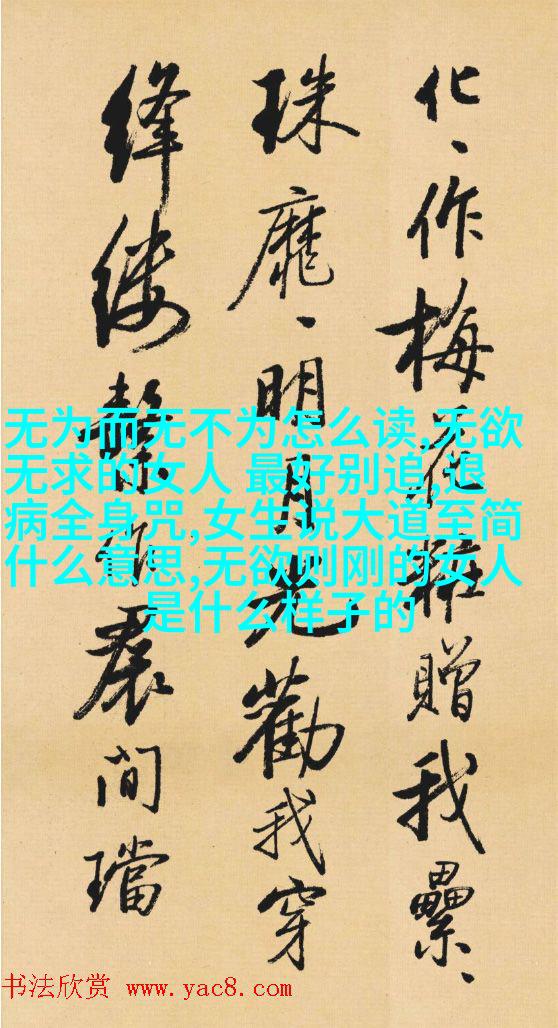 化、作梅花粧贈我纍、
珠靡、明月光勸我穿
絳縷繫作裠間璫
无为而无不为怎么读,无欲
无求的女人 最好别追,退
病全身咒,女生说大道至简
什么意思,无欲则刚的女人
是什么样子的
书法欣赏 www.yac8.com